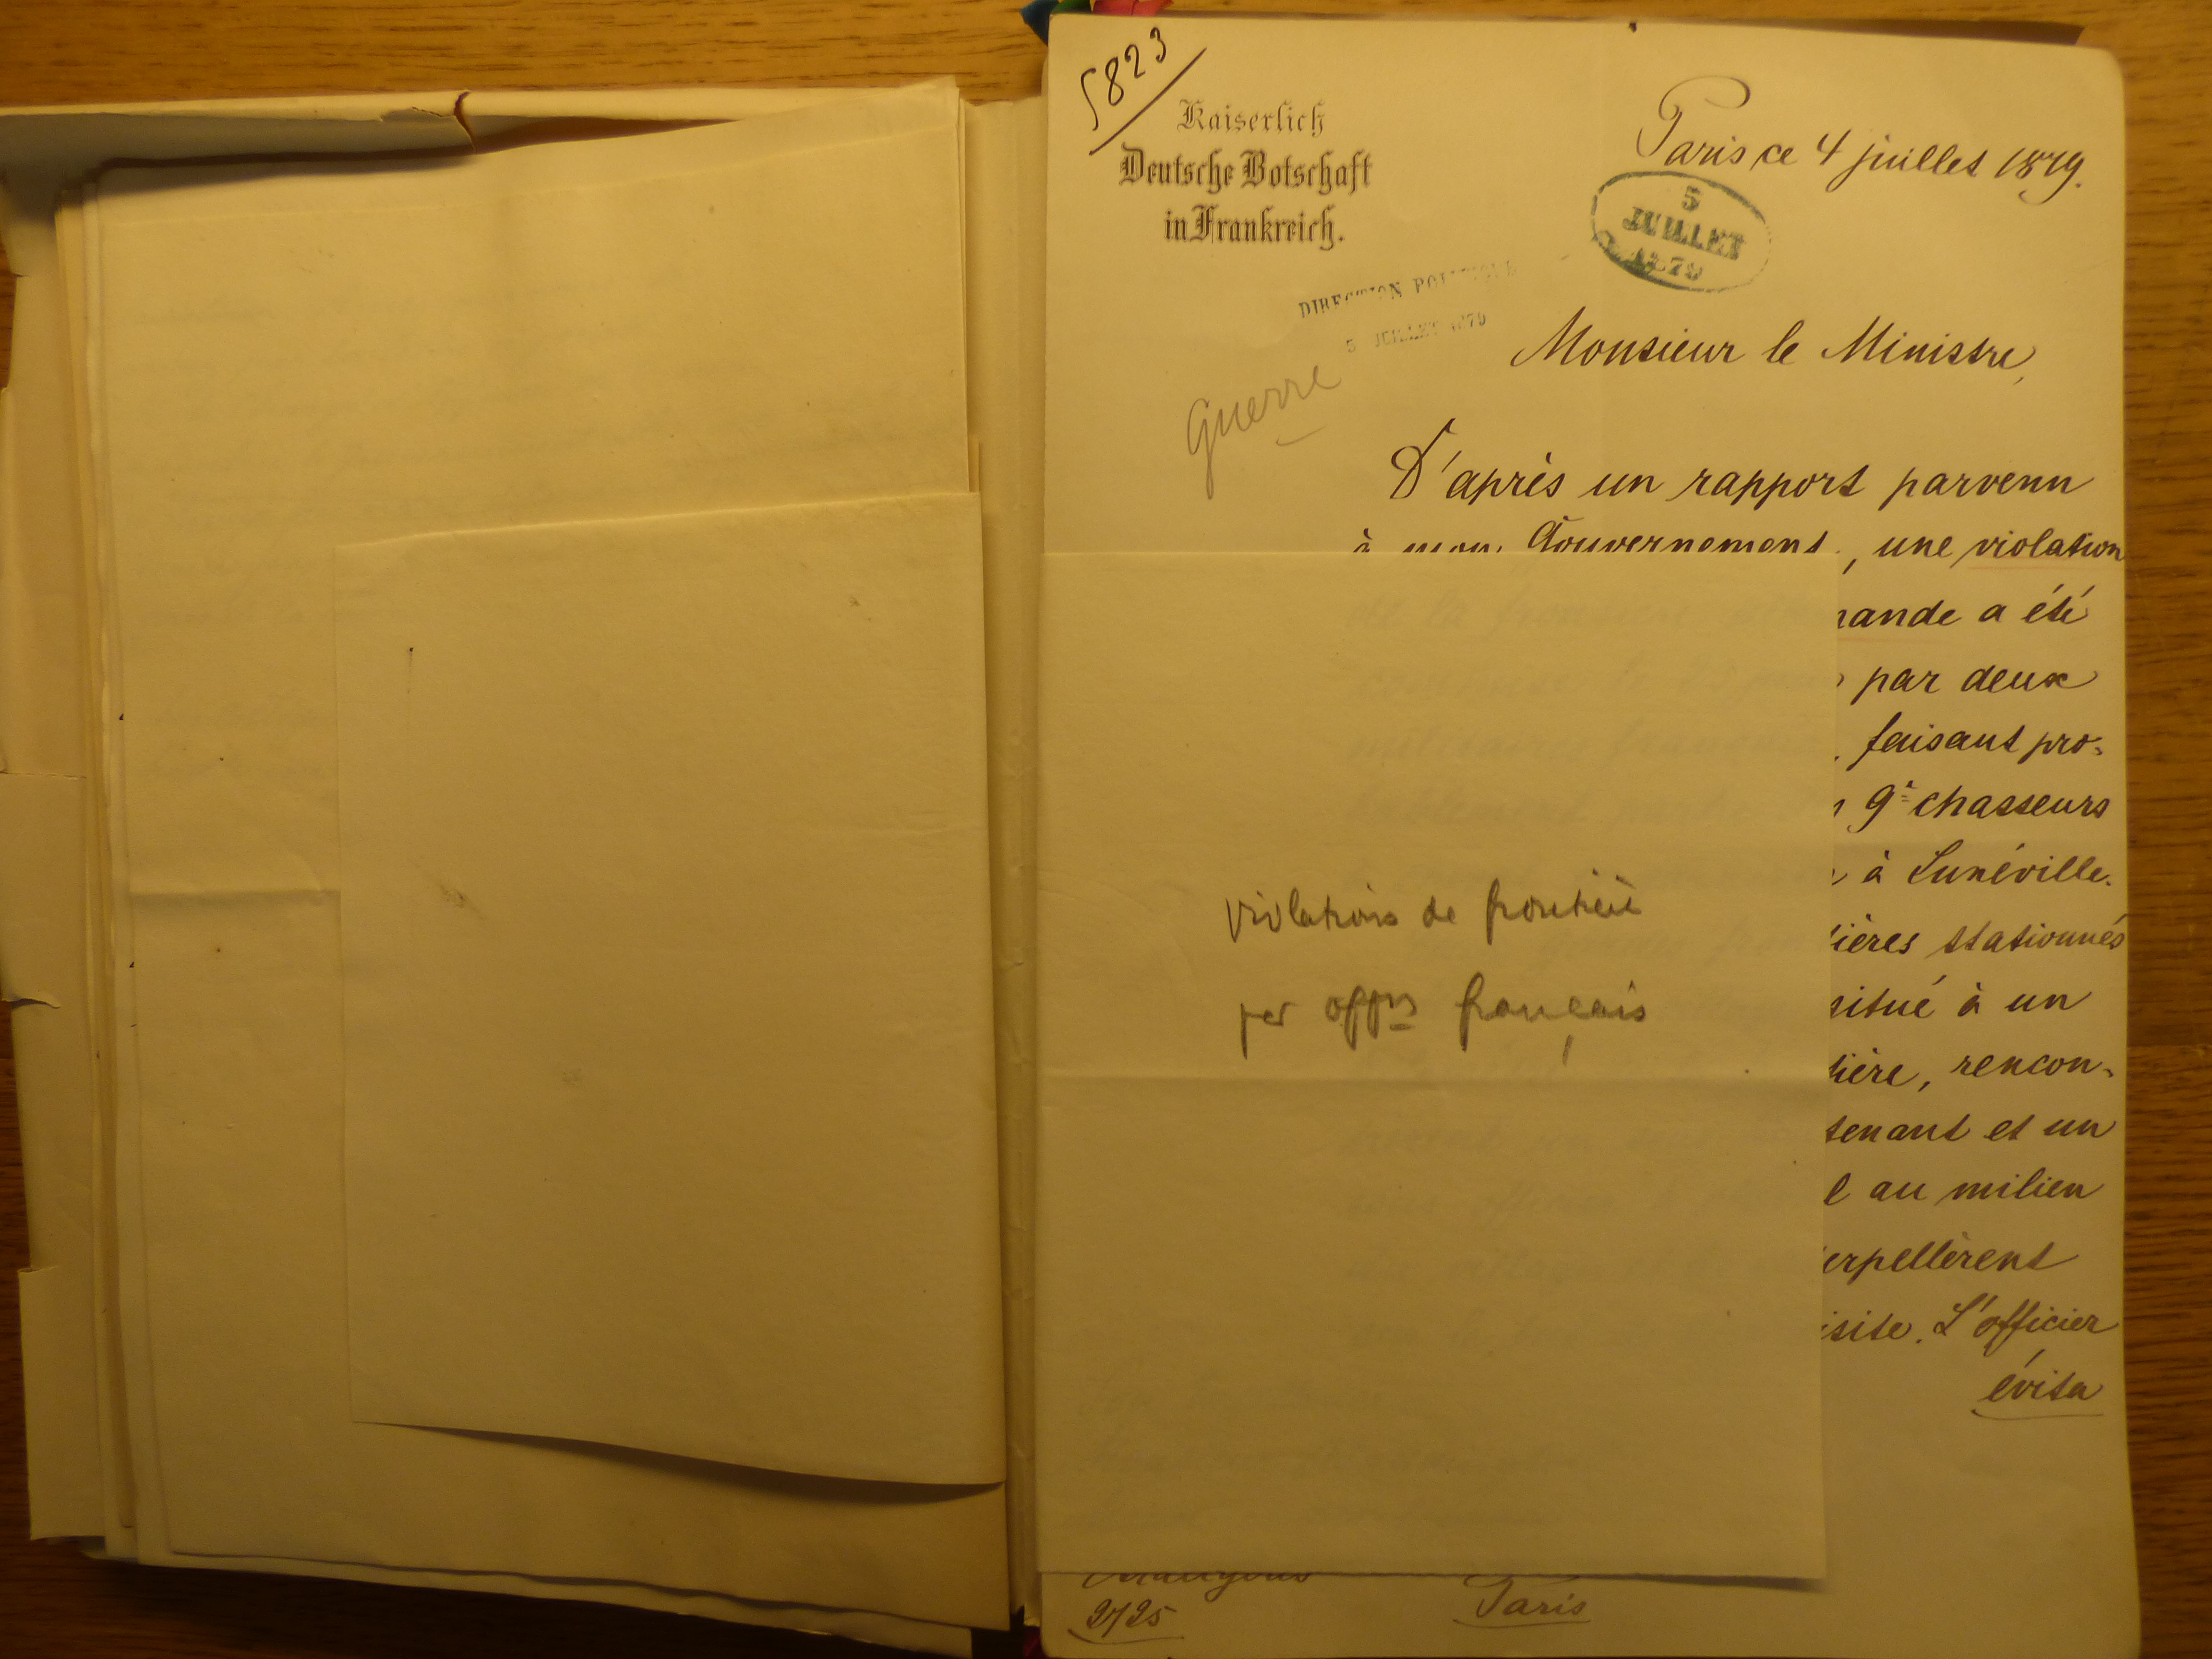 5823
Kaiserlich
Deutsche Botschaft
in Frankreich.
Paris ce 4 juillet 1879.
5
JUILLET
1879
DIRECTION POLITIQUE
5 JUILLET 1879
Guerre
Monsieur le Ministre,
D'après un rapport parvenu
à mon Gouvernement, une violation
mande a été
par deux
faisant pro-
9e chasseurs
à Lunéville.
ières stationnés
situé à un
tière, rencon-
tenant et un
l au milieu
erpellèrent
isite. L'officier
évita
violations de frontière
par offrs français
Paris